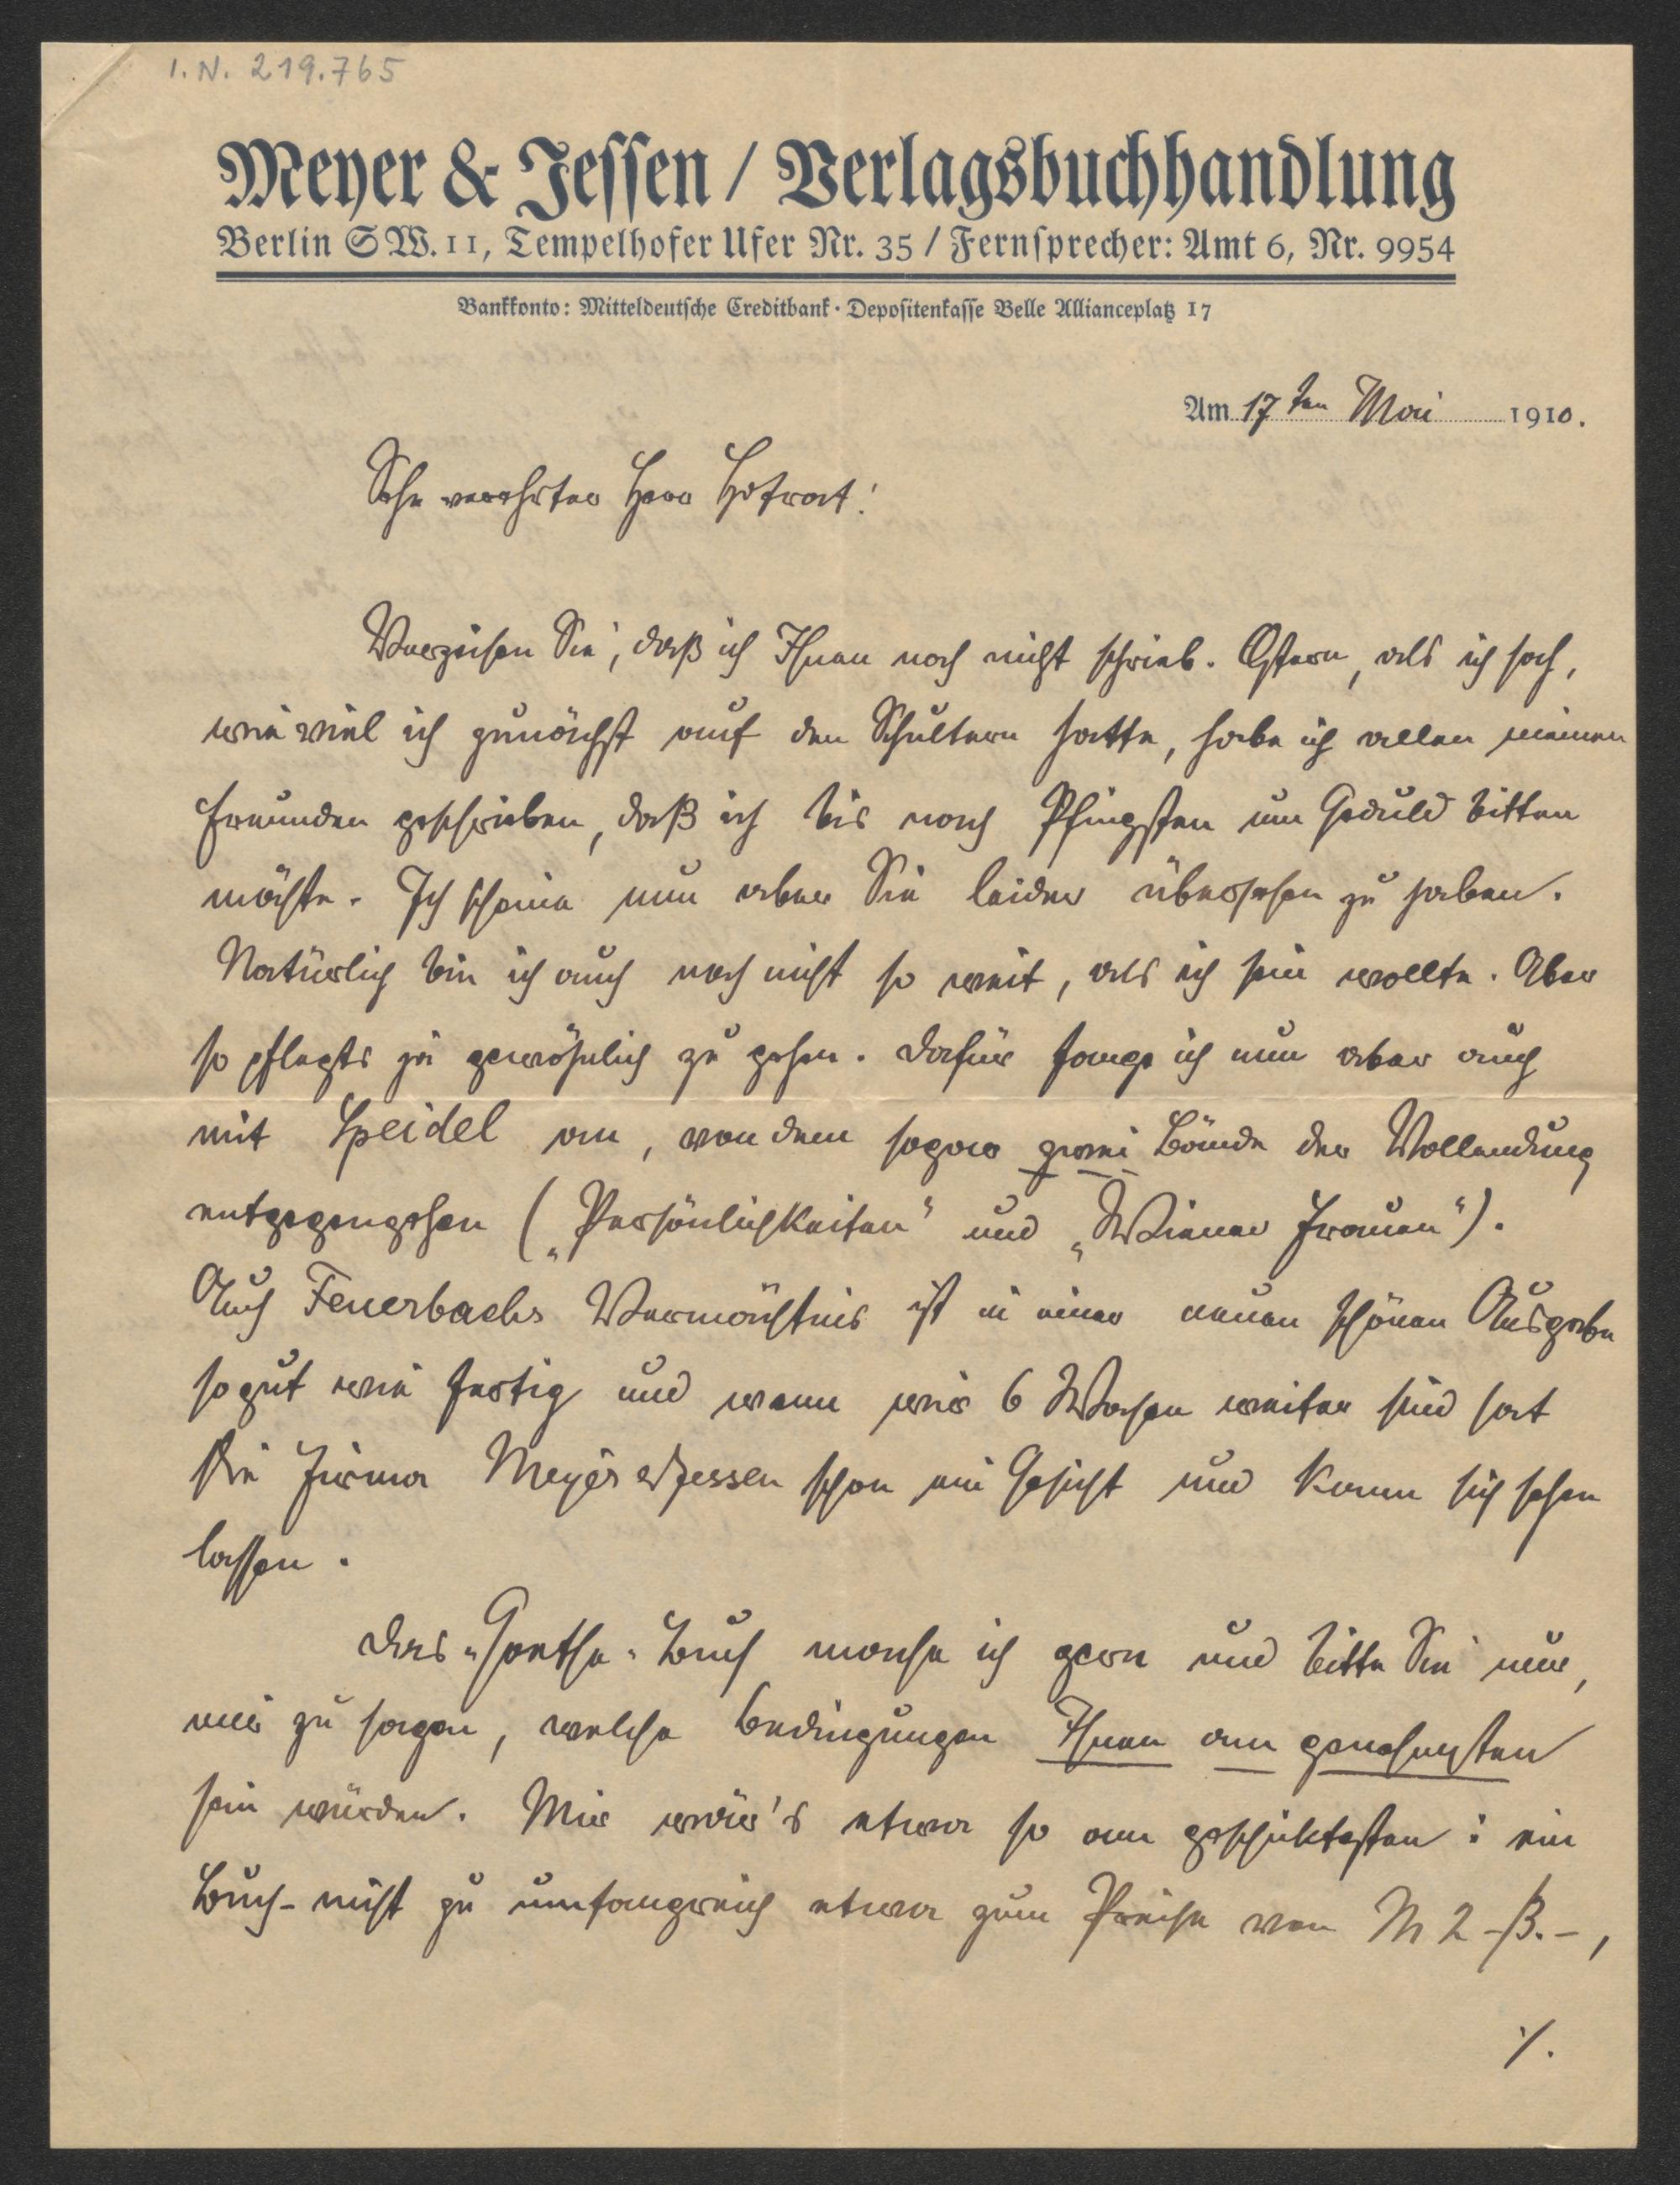 I. N. 219.765
Meyer & Jessen / Verlagsbuchhandlung
Berlin SW. 11, Tempelhofer Ufer Nr. 35 / Fernsprecher: Amt 6, Nr. 9954
Bankkonto: Mitteldeutsche Creditbank · Depositenkasse Belle Allianceplatz 17
Am 17ten Mai 1910.
Sehr verehrter Herr Hofrat!
Verzeihen Sie, daß ich Ihnen noch nicht schrieb. Ostern, als ich sah,
wie viel ich zunächst auf den Schultern hatte, habe ich allen meinen
Freunden geschrieben, daß ich bis nach Pfingsten um Geduld bitten
möchte. Ich scheine nun aber Sie leider übersehen zu haben.
Natürlich bin ich auch noch nicht so weit, als ich sein wollte. Aber
so pflegts ja gewöhnlich zu gehen. Dafür fange ich nun aber auch
mit Speidel an, von dem sogar zwei Bände der Vollendung
entgegengehen („Persönlichkeiten“ und „Wiener Frauen“).
Auch Feuerbachs Vermächtnis ist in einer neuen schönen Ausgabe
so gut wie fertig und wenn wir 6 Wochen weiter sind hat
die Firma Meyer & Jessen schon ein Gesicht und kann sich sehen
lassen.
Das „Goethe“ Buch mache ich gern und bitte Sie nur,
mir zu sagen, welche Bedingungen Ihnen am genehmsten
sein würden. Mir wär's etwa so am geschicktesten: ein
Buch - nicht zu umfangreich etwa zum Preise von M 2 - 3.-,
./.